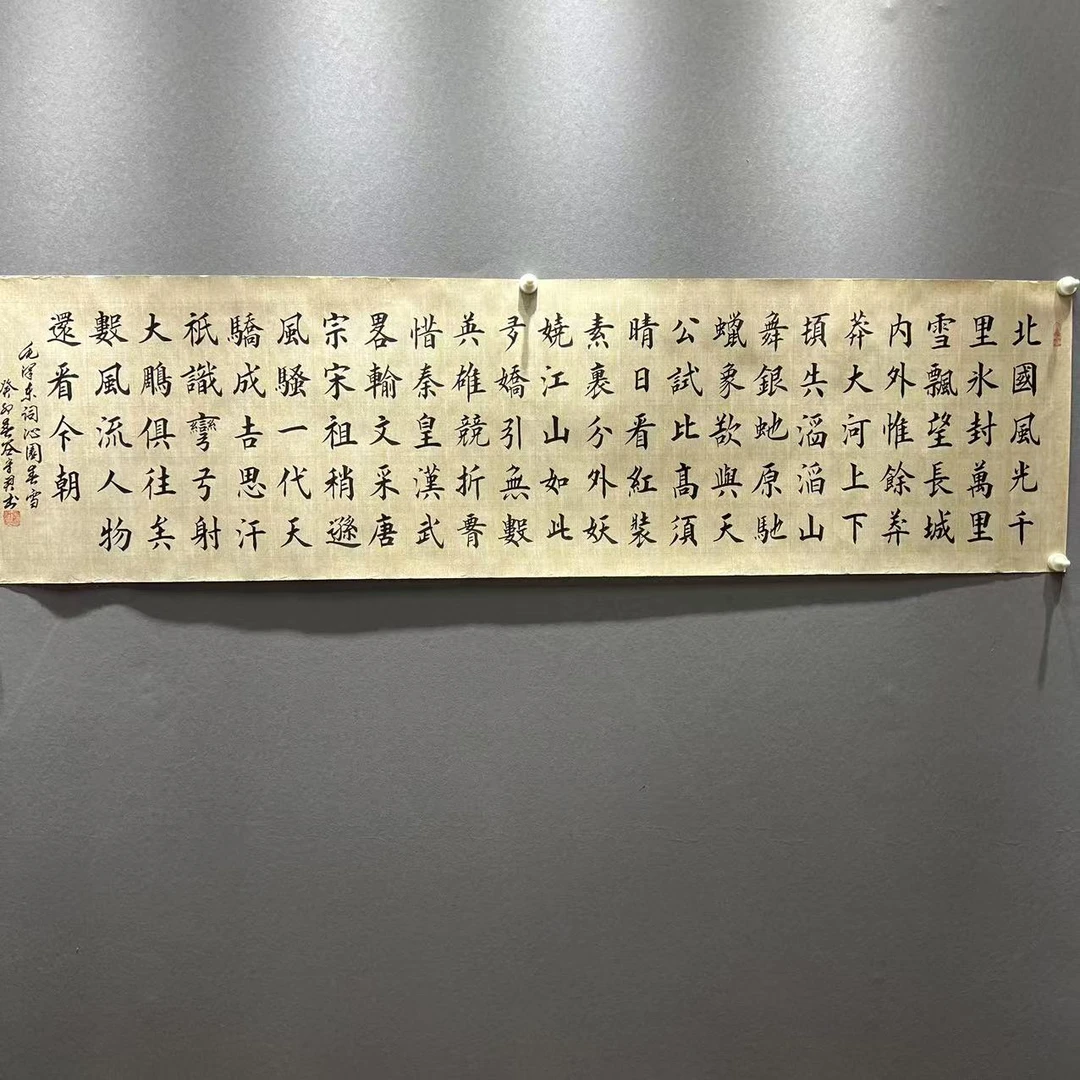 北國風光千
里氷封萬里
雪飄望長城
内外惟餘莽
莽大河上下
頓失滔滔山
舞銀虵原馳
蠟象欲與天
公試比髙須
晴日看紅裝
素裹分外妖
嬈江山如此
多嬌引無數
英雄競折腰
惜秦皇漢武
畧輸文采唐
宗宋祖稍遜
風騷一代天
驕成吉思汗
祇識彎弓射
大鵰俱往矣
數風流人物
還看今朝
毛澤东詞沁園春雪
癸卯春书